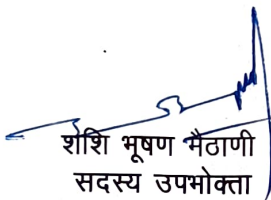 शशि भूषण मैठाणी
सदस्य उपभोक्ता